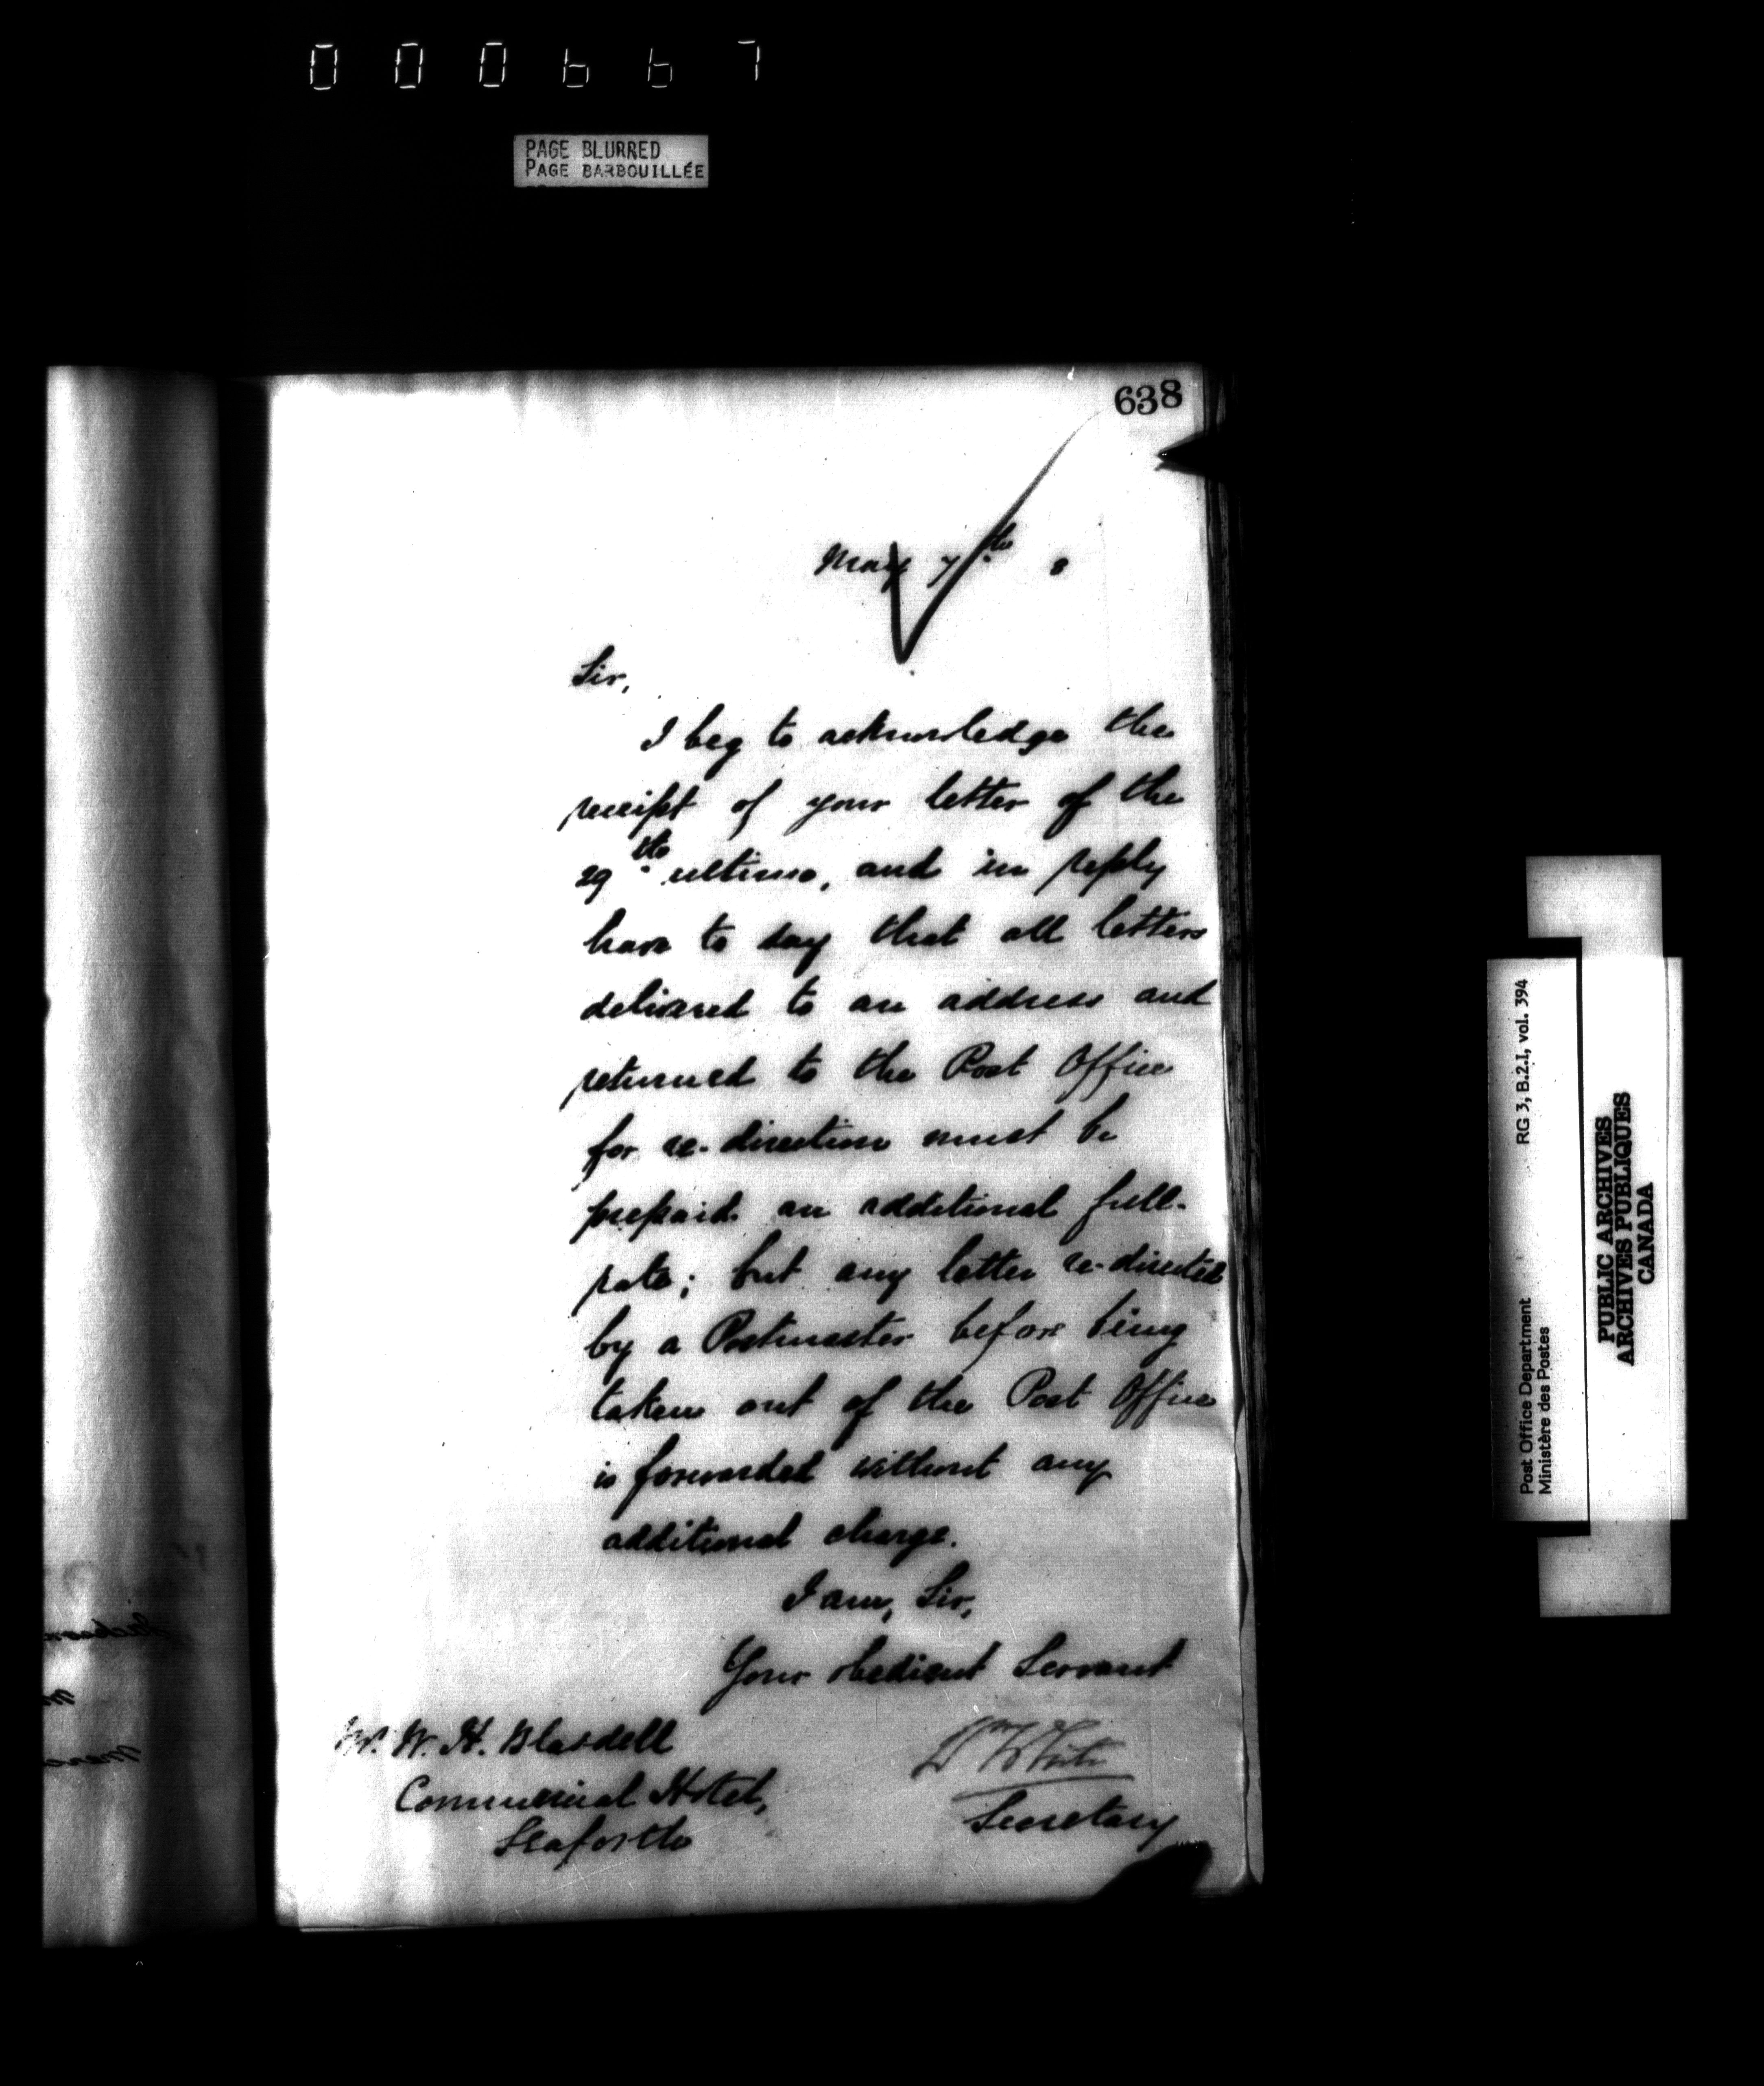 000667
PAGE BLURRED
PAGE BARBOUILLÉE
638
May 7th 8
Sir,
I beg to acknowledge the
receipt of your letter of the
29th ultimo, and in reply
have to say that all letters
delivered to an address and
returned to the Post Office
for re-direction must be
prepaid an additional full-
rate; but any letter re-directed
by a Postmaster before being
taken out of the Post Office
is forwarded without any
additional charge.
I am, Sir,
Your obedient Servant
Wm White
Secretary
W. H. Blasdell
Commercial Hotel,
Seaforth
Post Office Department RG 3, B.2.I, vol. 394
Ministère des Postes
PUBLIC ARCHIVES
ARCHIVES PUBLIQUES
CANADA